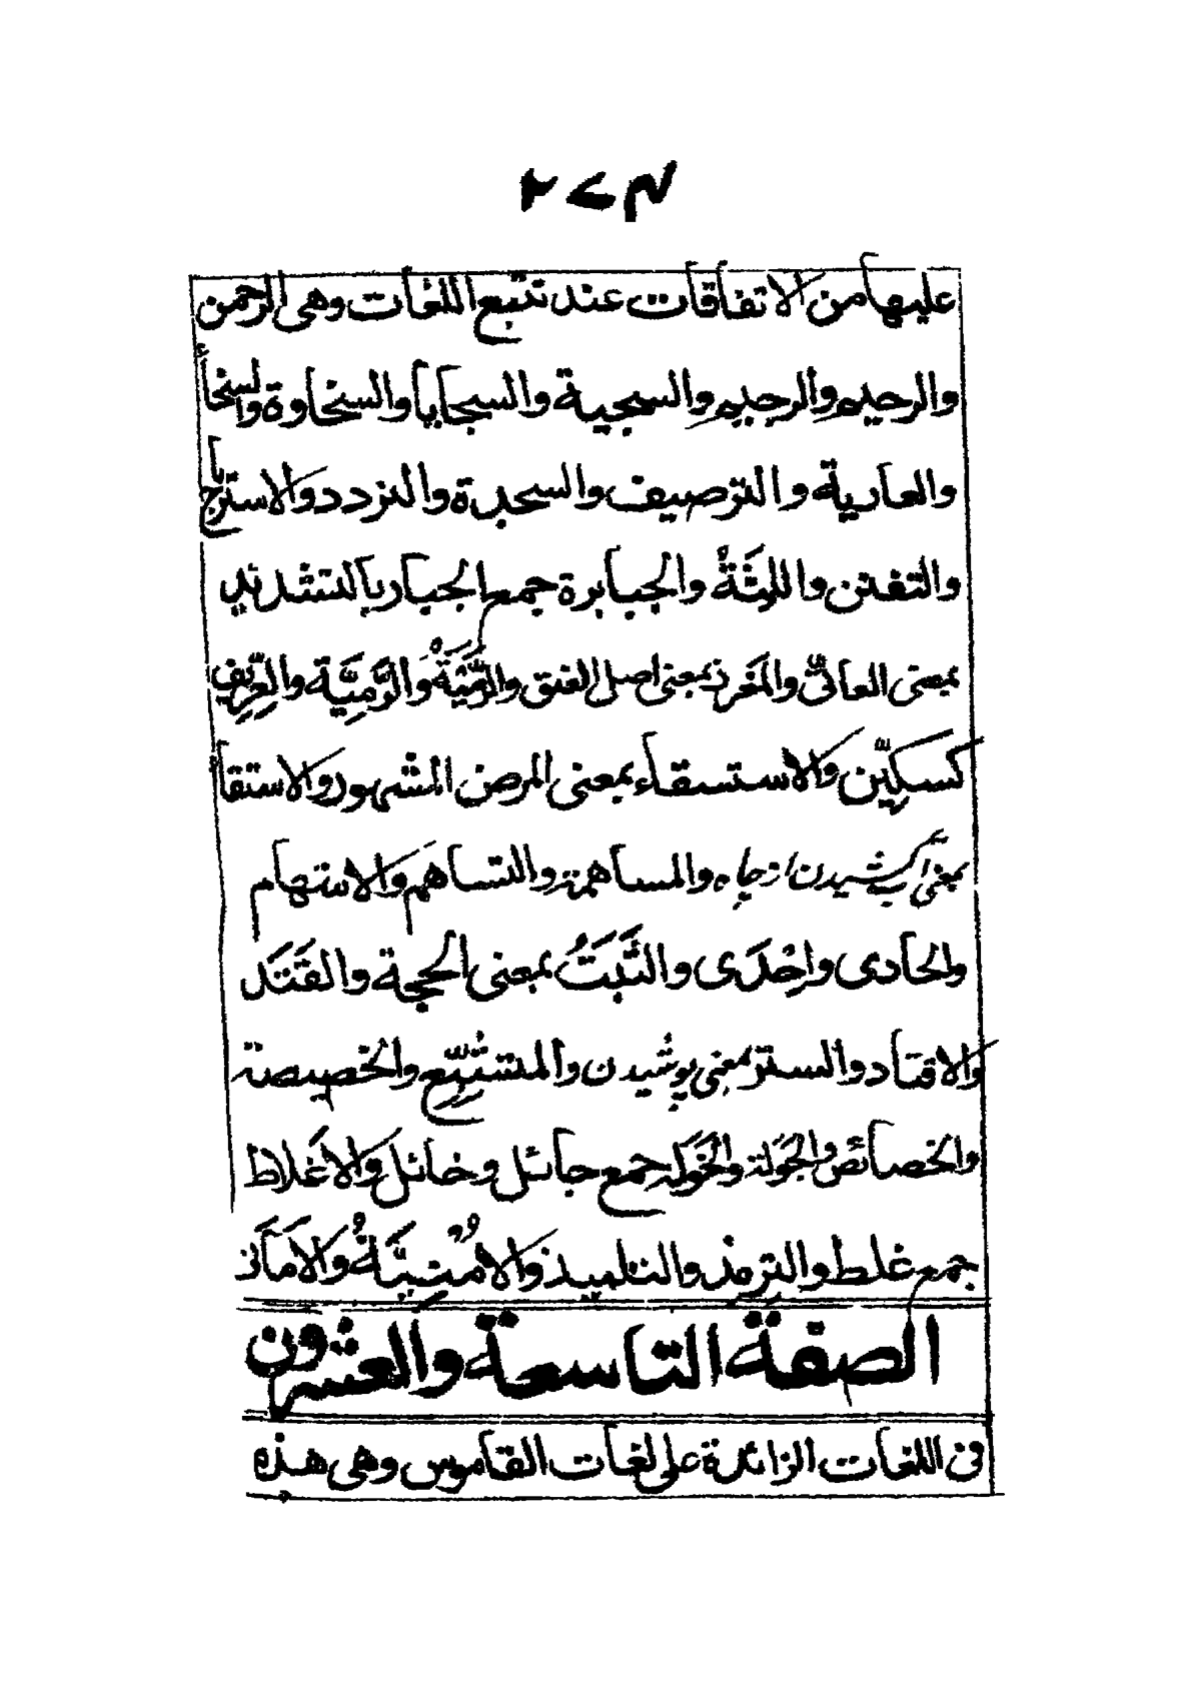 ٣٧٢
عليها من الاتفاقات عند تتبع اللغات وهى الرحمن
والرحيم والرجيم والسجية والسجايا والسخاوة والسخأ
والعارية والترصيف والسحدة والتردد والاسترجا
والتفتن واللِثَةُ والجبابرة جمع الجبار بالتشديد
بمعنى العاتىّ والمَغرز بمعنى اصل العنق والرَّمْيَةُ والرَّمِيَّة والعِرِّيف
كسكيّن والاستسقاء بمعنى المرض المشهور والاستقأ
بمعنى آب كشيدن از چاه والمساهمة والتساهم والاستهام
والحادى واِحْدَى والثَّبَتُ بمعنى الحجة والقَتَد
والاقتاد والستر بمعنى پوشيدن والمتشبِّع والخصيصة
والخصائص والجَوَلة والخَوَلة جمع جائل وخائل والاَغلاط
جمع غلط والترمذ والتلميذ والاُمْنِيَّةُ والاَمَانى
الصفة التاسعة والعشرون
فى اللغات الزائدة على لغات القاموس وهى هذه